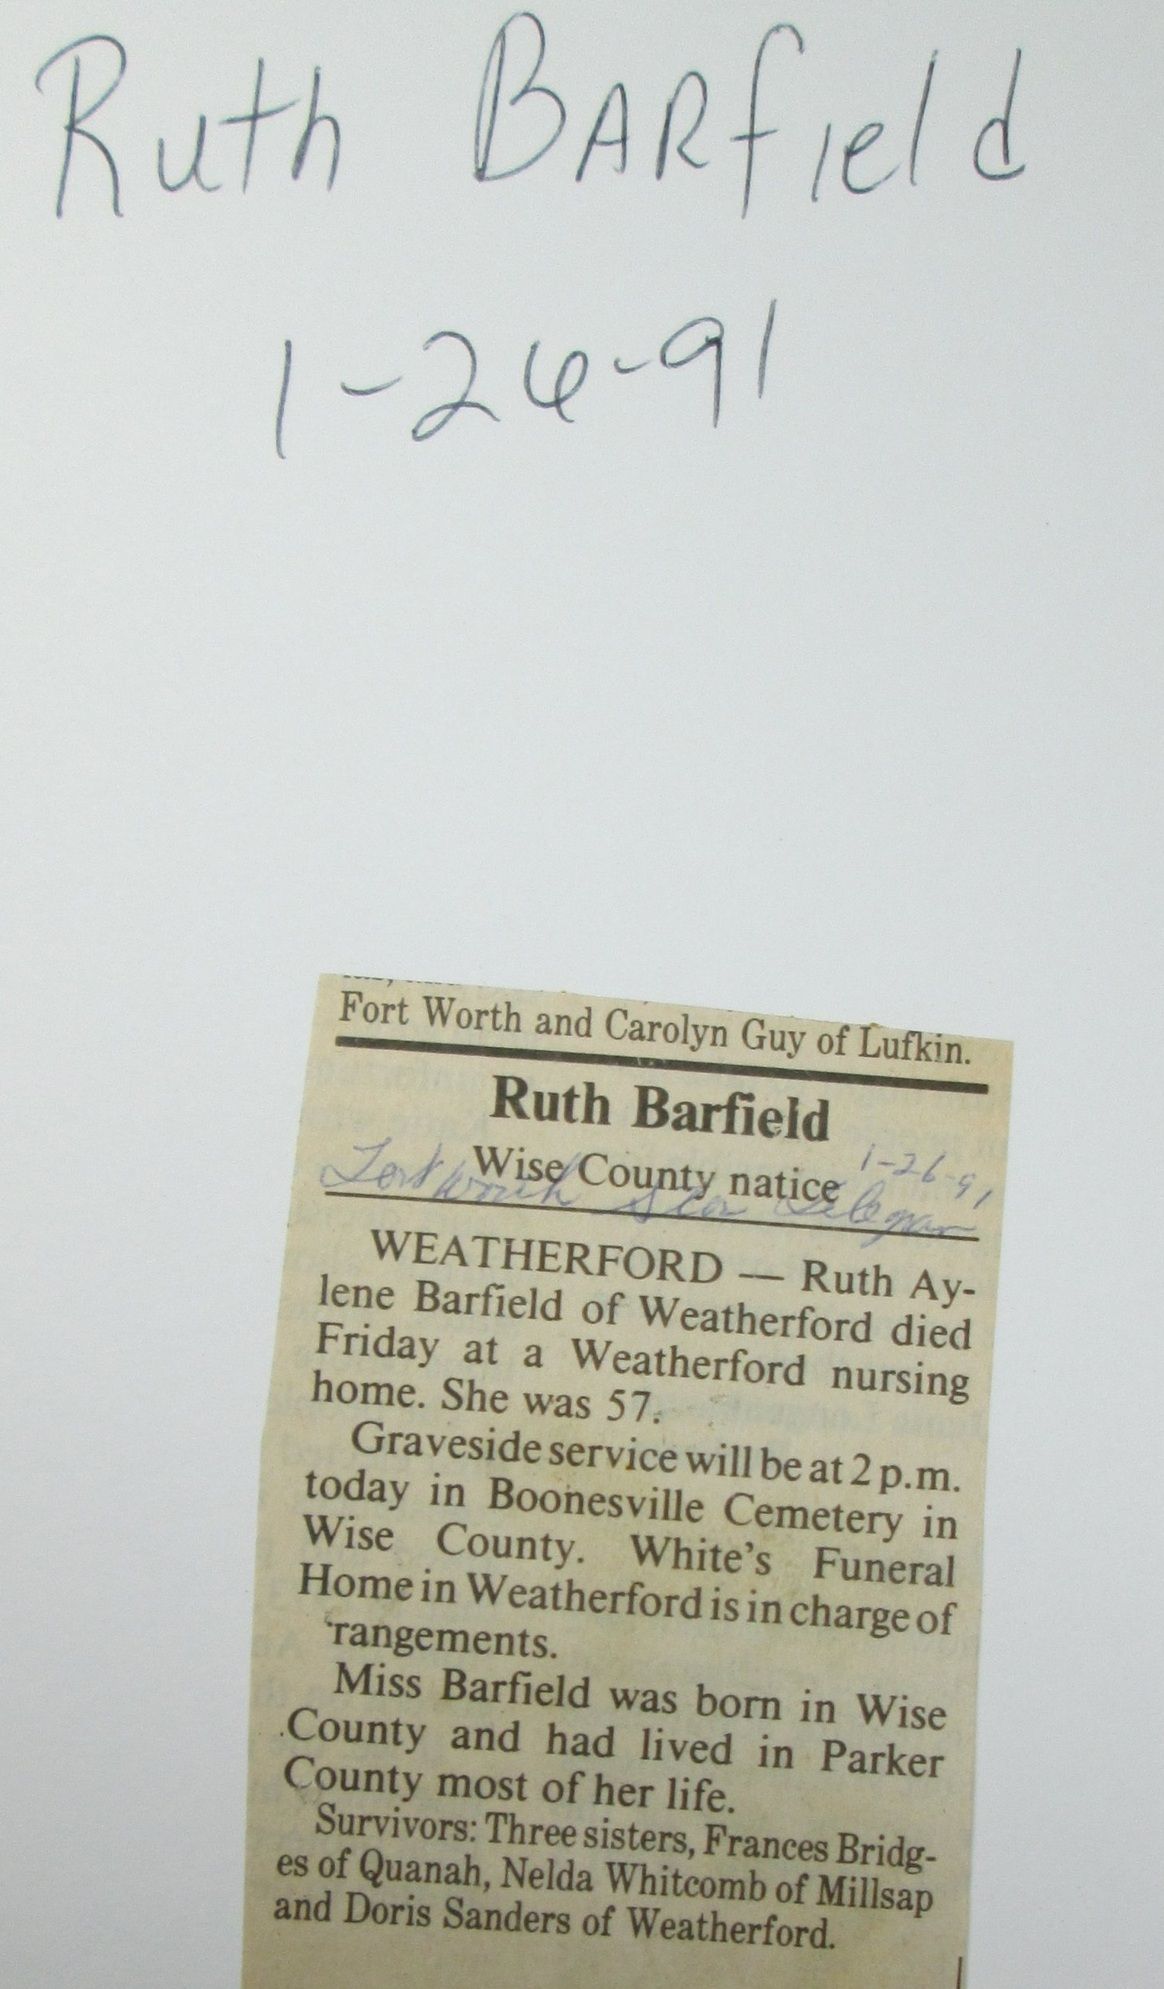 Ruth BARfield
1-26-91
Fort Worth and Carolyn Guy of Lufkin.
Ruth Barfield
Wise County natice
1-26-91
Fort Worth Star Telegram
WEATHERFORD — Ruth Ay-
lene Barfield of Weatherford died
Friday at a Weatherford nursing
home. She was 57.
Graveside service will be at 2 p.m.
today in Boonesville Cemetery in
Wise County. White's Funeral
Home in Weatherford is in charge of
'rangements.
Miss Barfield was born in Wise
County and had lived in Parker
County most of her life.
Survivors: Three sisters, Frances Bridg-
es of Quanah, Nelda Whitcomb of Millsap
and Doris Sanders of Weatherford.